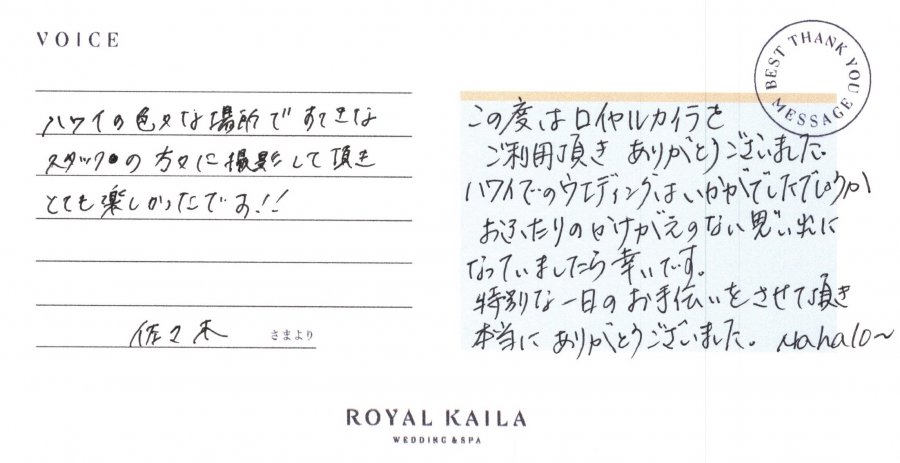 VOICE
ハワイの色々な場所ですてきな
スタッフの方々に撮影して頂き
とても楽しかったです!!
佐々木 さまより
BEST THANK YOU MESSAGE
この度はロイヤルカイラを
ご利用頂き ありがとうございました。
ハワイでのウエディングはいかがでしたでしょうか
おふたりのかけがえのない思い出に
なっていましたら幸いです。
特別な一日のお手伝いをさせて頂き
本当に ありがとうございました。 Mahalo~
ROYAL KAILA
WEDDING & SPA